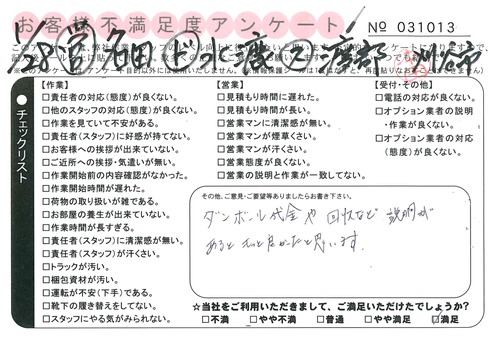 お客様不満足度アンケート
No 031013
チェックリスト
【作業】
□責任者の対応(態度)が良くない。
□他のスタッフの対応(態度)が良くない。
□作業を見ていて不安がある。
□責任者(スタッフ)に好感が持てない。
□お客様への挨拶が出来ていない。
□ご近所への挨拶・気遣いが無い。
□作業開始前の内容確認がなかった。
□作業開始時間が遅れた。
□荷物の取り扱いが雑である。
□お部屋の養生が出来ていない。
□作業時間が長すぎる。
□責任者(スタッフ)に清潔感が無い。
□責任者(スタッフ)が汗くさい。
□トラックが汚い。
□梱包資材が汚い。
□運転が不安(下手)である。
□靴下の履き替えをしてない。
□スタッフにやる気がみられない。
【営業】
□見積もり時間に遅れた。
□見積もり時間が長い。
□営業マンに清潔感が無い。
□営業マンが煙草くさい。
□営業マンが汗くさい。
□営業態度が良くない。
□営業の説明と作業が一致してない。
【受付・その他】
□電話の対応が良くない。
□オプション業者の説明
・作業が良くない。
□オプション業者の対応
(態度)が良くない。
その他、ご意見・ご要望等ありましたらお書き下さい。
ダンボール代金や 回収など 説明が
あると もっと良かったと思います。
☆当社をご利用いただきまして、ご満足いただけたでしょうか?
□不満 □やや不満 □普通 □やや満足 □満足